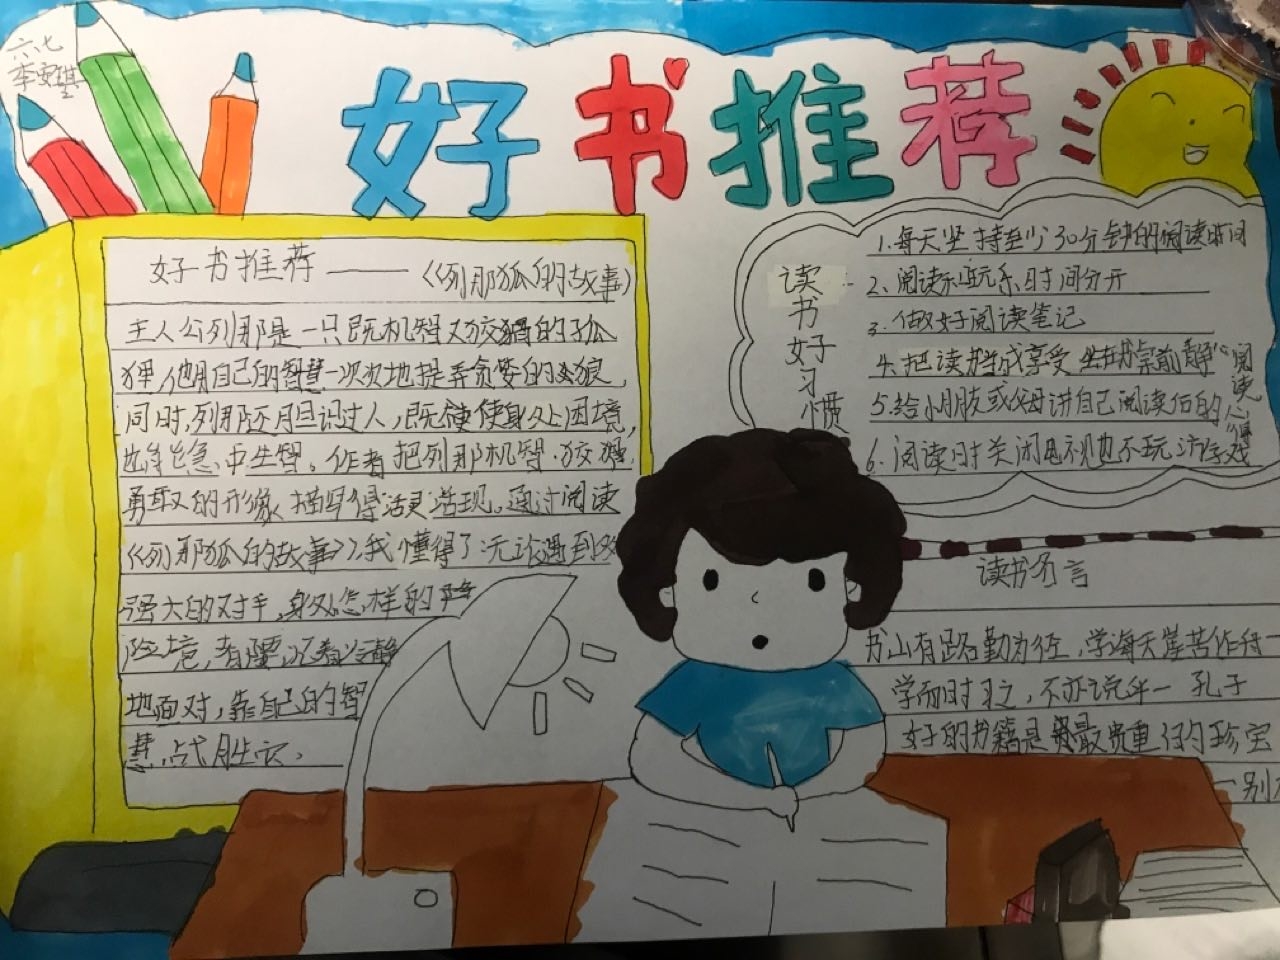 六、七
李
好书推荐
好书推荐——《列那狐的故事》
主人公列那是一只既机智又狡猾的狐
狸,他用自己的智慧一次次地捉弄贪婪的 狼
同时,列那还 胆识过人,既使身处困境,
也能急中生智。作者把列那机智、狡猾、
勇敢的形象描写得活灵活现。通过阅读
《列那狐的故事》,我懂得了:无论遇到多
强大的对手,身处怎样的
险境,都要 着冷静
地面对,靠自己的智
慧,战胜它。
读书好习惯:
1.每天坚持至少30分钟的阅读时间
2、阅读和玩乐时间分开
3.做好阅读笔记
4.把读书当成享受 坐在书桌前静心阅读
5.给小朋友或父母讲自己阅读后的心得
6.阅读时关闭电视也不玩游戏
读书名言
书山有路勤为径,学海无崖苦作舟一
学而时习之,不亦说乎一 孔子
好的书籍是最贵重的珍宝
一别